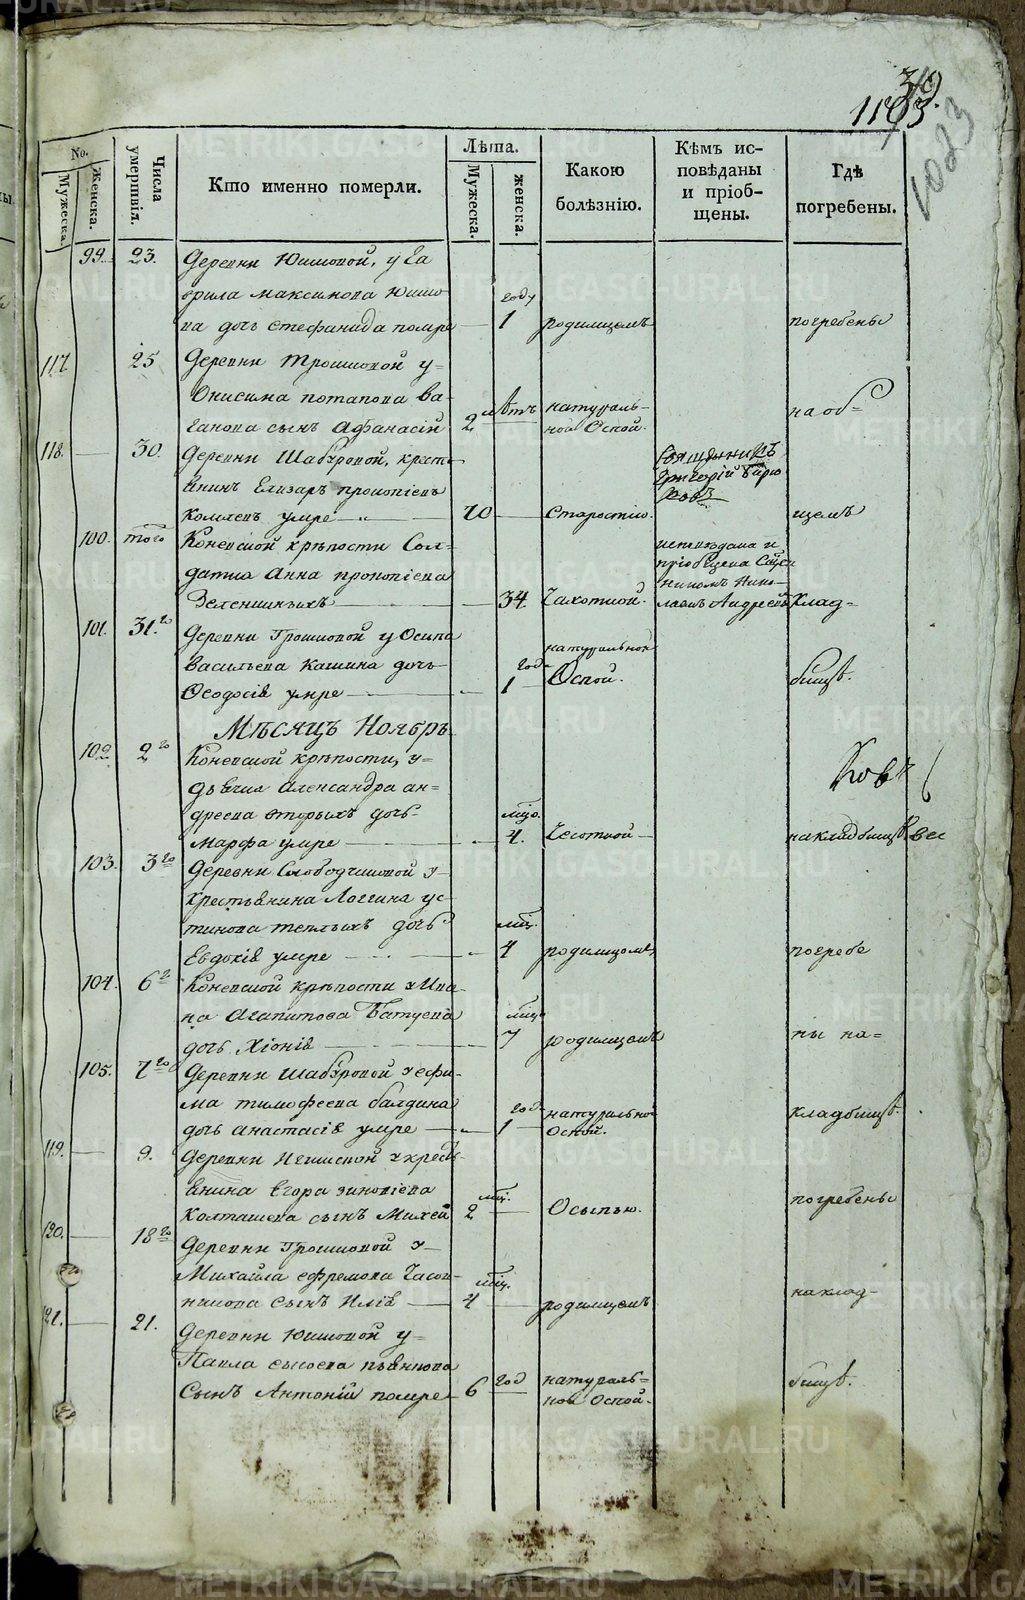 39.
1163
1083
No.
Мужеска.
Женска.
Числа умершвія.
Кто именно померли.
Лѣта.
Мужеска.
женска.
Какою болѣзнію.
Кѣмъ ис-
повѣданы
и пріоб-
щены.
Гдѣ
погребены.
99. 23. Деревни Юшковой, у Га
врила Максимова Юшко
ва дочь Стефанида помре 1 году родимцемъ погребены
117. 25 Деревни Трошковой у
Онисима Потапова Ва
ганова сынъ Афанасій 2 лѣтъ натураль-
ной Оспой. на об=
118. 30. Деревни Шабуровой, крест
янинъ Елизаръ Прокопіевъ
умре 70 старостію. Священникъ
Григорій щемъ
100. того Коневской крѣпости Сол-
датка Анна Прокопіева
Зелениныхъ 34. Чахоткой. исповедана и
пріобщена Свяще
никомъ Нико
лаемъ Андреевъ Клад=
101. 31.го Деревни Трошковой у Осипа
Васильева Кашина дочь
Ѳеодосія умре 1 года натуральной
Оспой. бищѣ.
Мѣсяцъ Ноябрь
102 2го Коневской крѣпости, у
дѣвки Александра Ан=
дреева Вторыхъ дочь
Марфа умре 4. мцо. Чесоткой на кладбищѣ
103. 3го Деревни Слободчиковой у
крестьянина Логгина Ус
тинова Теплыхъ дочь
Евдокія умре 4 мцо. родимцомъ погребе
104. 6го Коневской крѣпости у Ива
на Агапитова Батуева
дочь Хіонія 7 мцо родимцемъ ны на=
105. 7го Деревни Шабуровой у Ефи
ма Тимофеева Балдина
дочь Анастасія умре 1 год натуральной
оспой. кладбищѣ.
119. 9. Деревни у крест
янина Егора Зиновіева
Колташева сынъ Михей 2 мц. Осыпью. погребены
120. 18го Деревни Трошковой у
Михайла Ефремова Часов-
никова сынъ Илія 4 мц. родимцемъ на клад-
121. 21. Деревни Юшковой у
Павла Сысоева Пьянкова
Сынъ Антоній помре 6 год натураль=
ной оспой. бищѣ.
METRIKI.GASO-URAL.RU